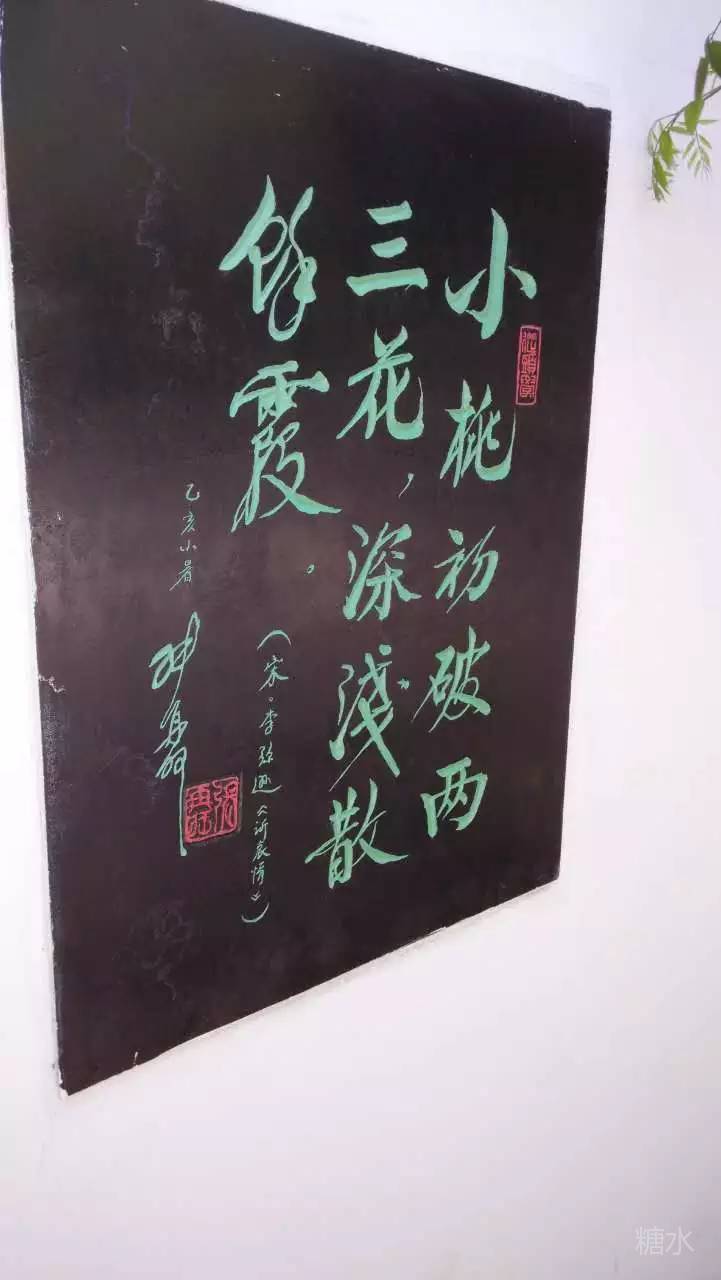 小桃初破两
三花，深淺散
餘霞。
（宋·李弥逊《诉衷情》）
乙亥小暑
糖水